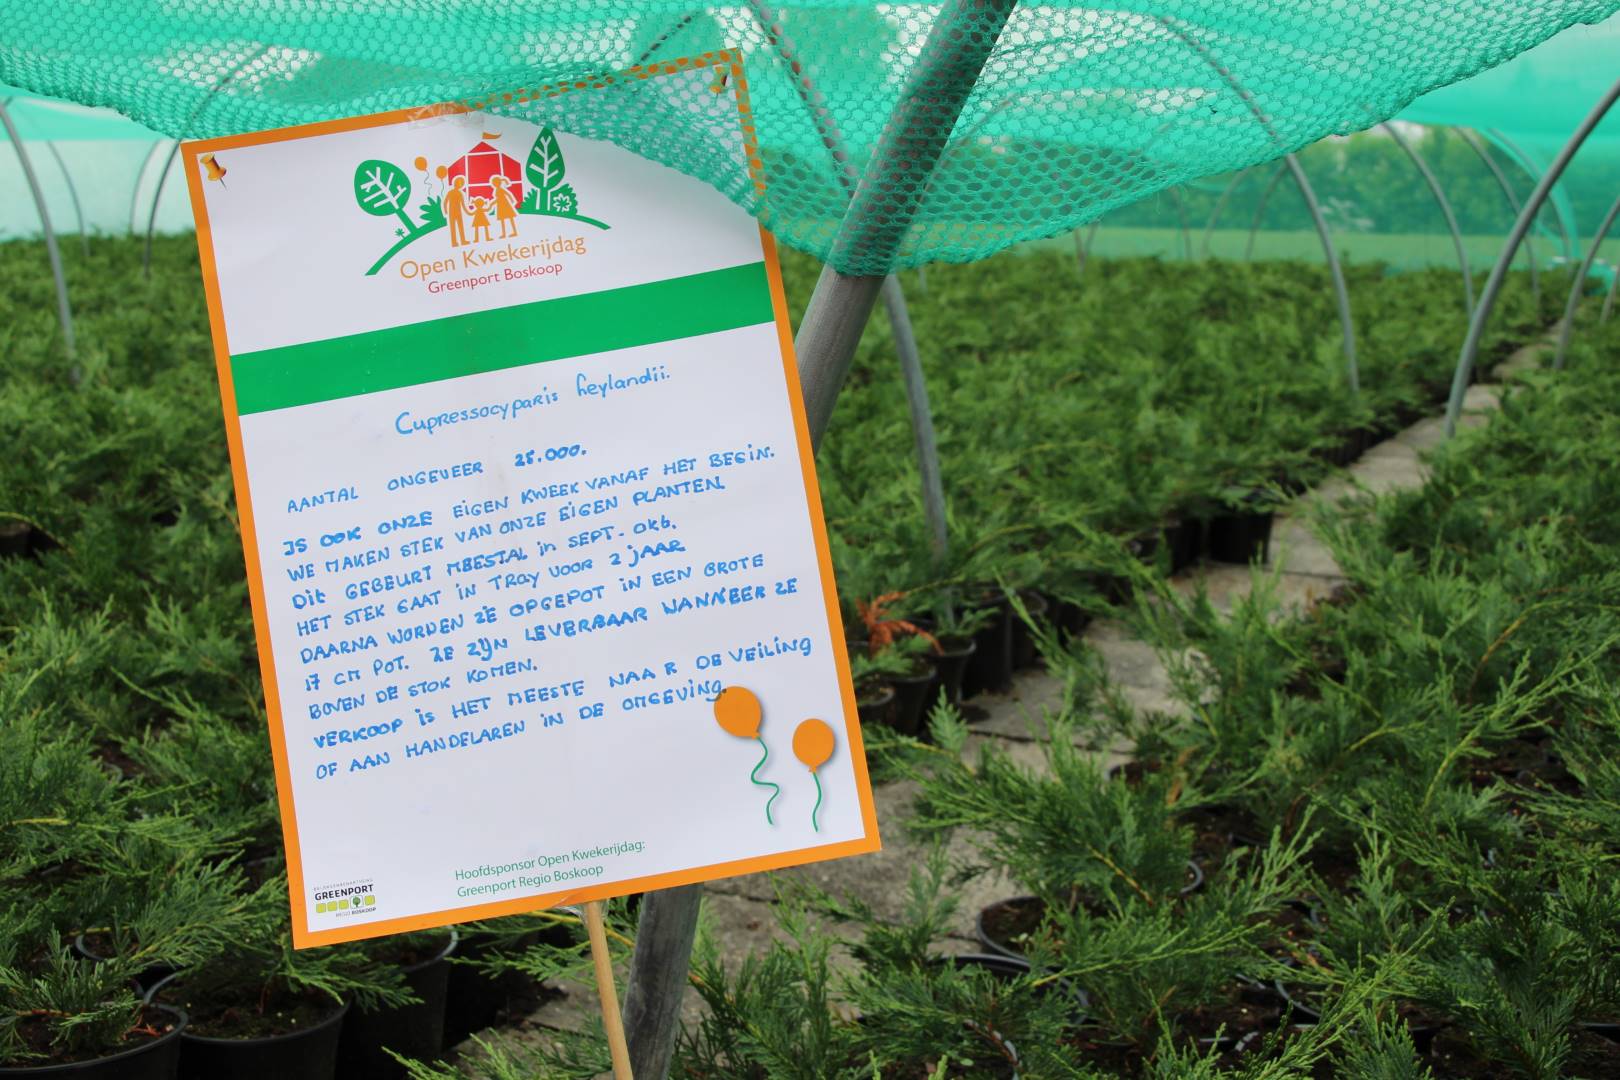 Open Kwekerijdag
Greenport Boskoop
Cupressocyparis heylandii.
AANTAL ONGEVEER 25.000.
IS OOK ONZE EIGEN KWEEK VANAF HET BEGIN.
WE MAKEN STEK VAN ONZE EIGEN PLANTEN.
Dit GEBEURT MEESTAL in SEPT. Okt.
HET STEK GAAT IN TRAY VOOR 2 jAAR
DAARNA WORDEN ZE OPGEPOT IN EEN GROTE
17 CM POT. ZE ZIJN LEVERBAAR WANNEER ZE
BOVEN DE STOK KOMEN.
VERKOOP is HET MEESTE NAAR DE VEILING
OF AAN HANDELAREN IN DE OMGEVING.
Hoofdsponsor Open Kwekerijdag:
Greenport Regio Boskoop
BELANGENBEHARTIGING
GREENPORT
REGIO BOSKOOP